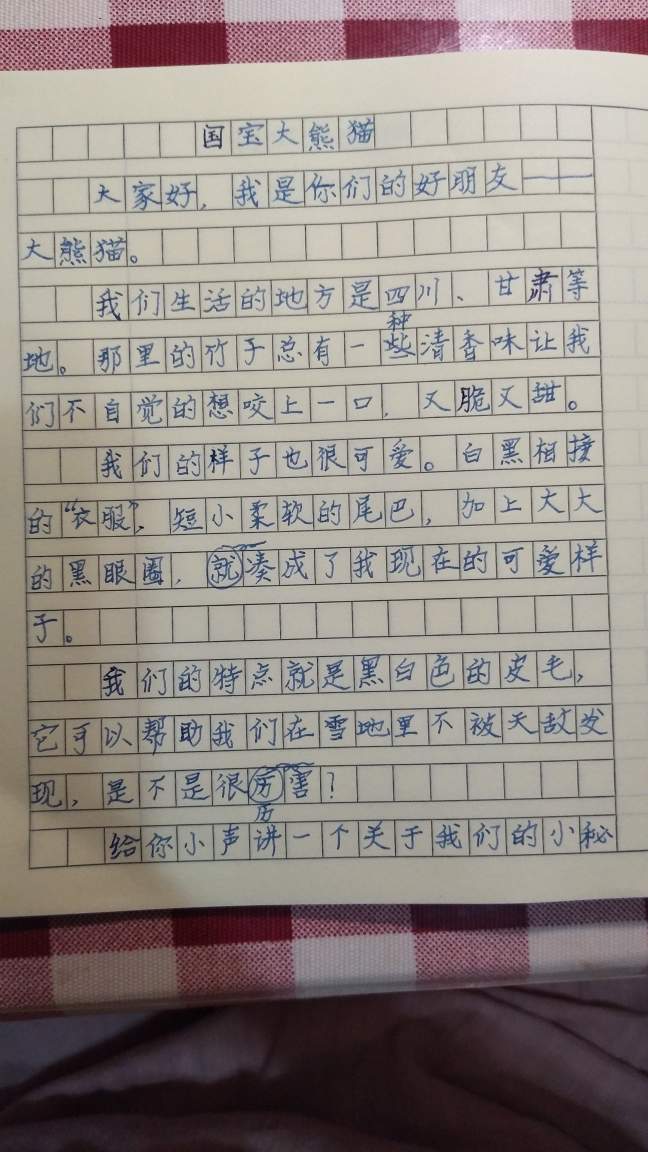 国宝大熊猫
大家好，我是你们的好朋友——
大熊猫。
我们生活的地方是四川、甘肃等
种
地。那里的竹子总有一些清香味让我
们不自觉的想咬上一口，又脆又甜。
我们的样子也很可爱。白黑相接
的“衣服”，短小柔软的尾巴，加上大大
的黑眼圈，就凑成了我现在的可爱样
子。
我们的特点就是黑白色的皮毛，
它可以帮助我们在雪地里不被天敌发
现，是不是很厉害？
历
给你小声讲一个关于我们的小秘